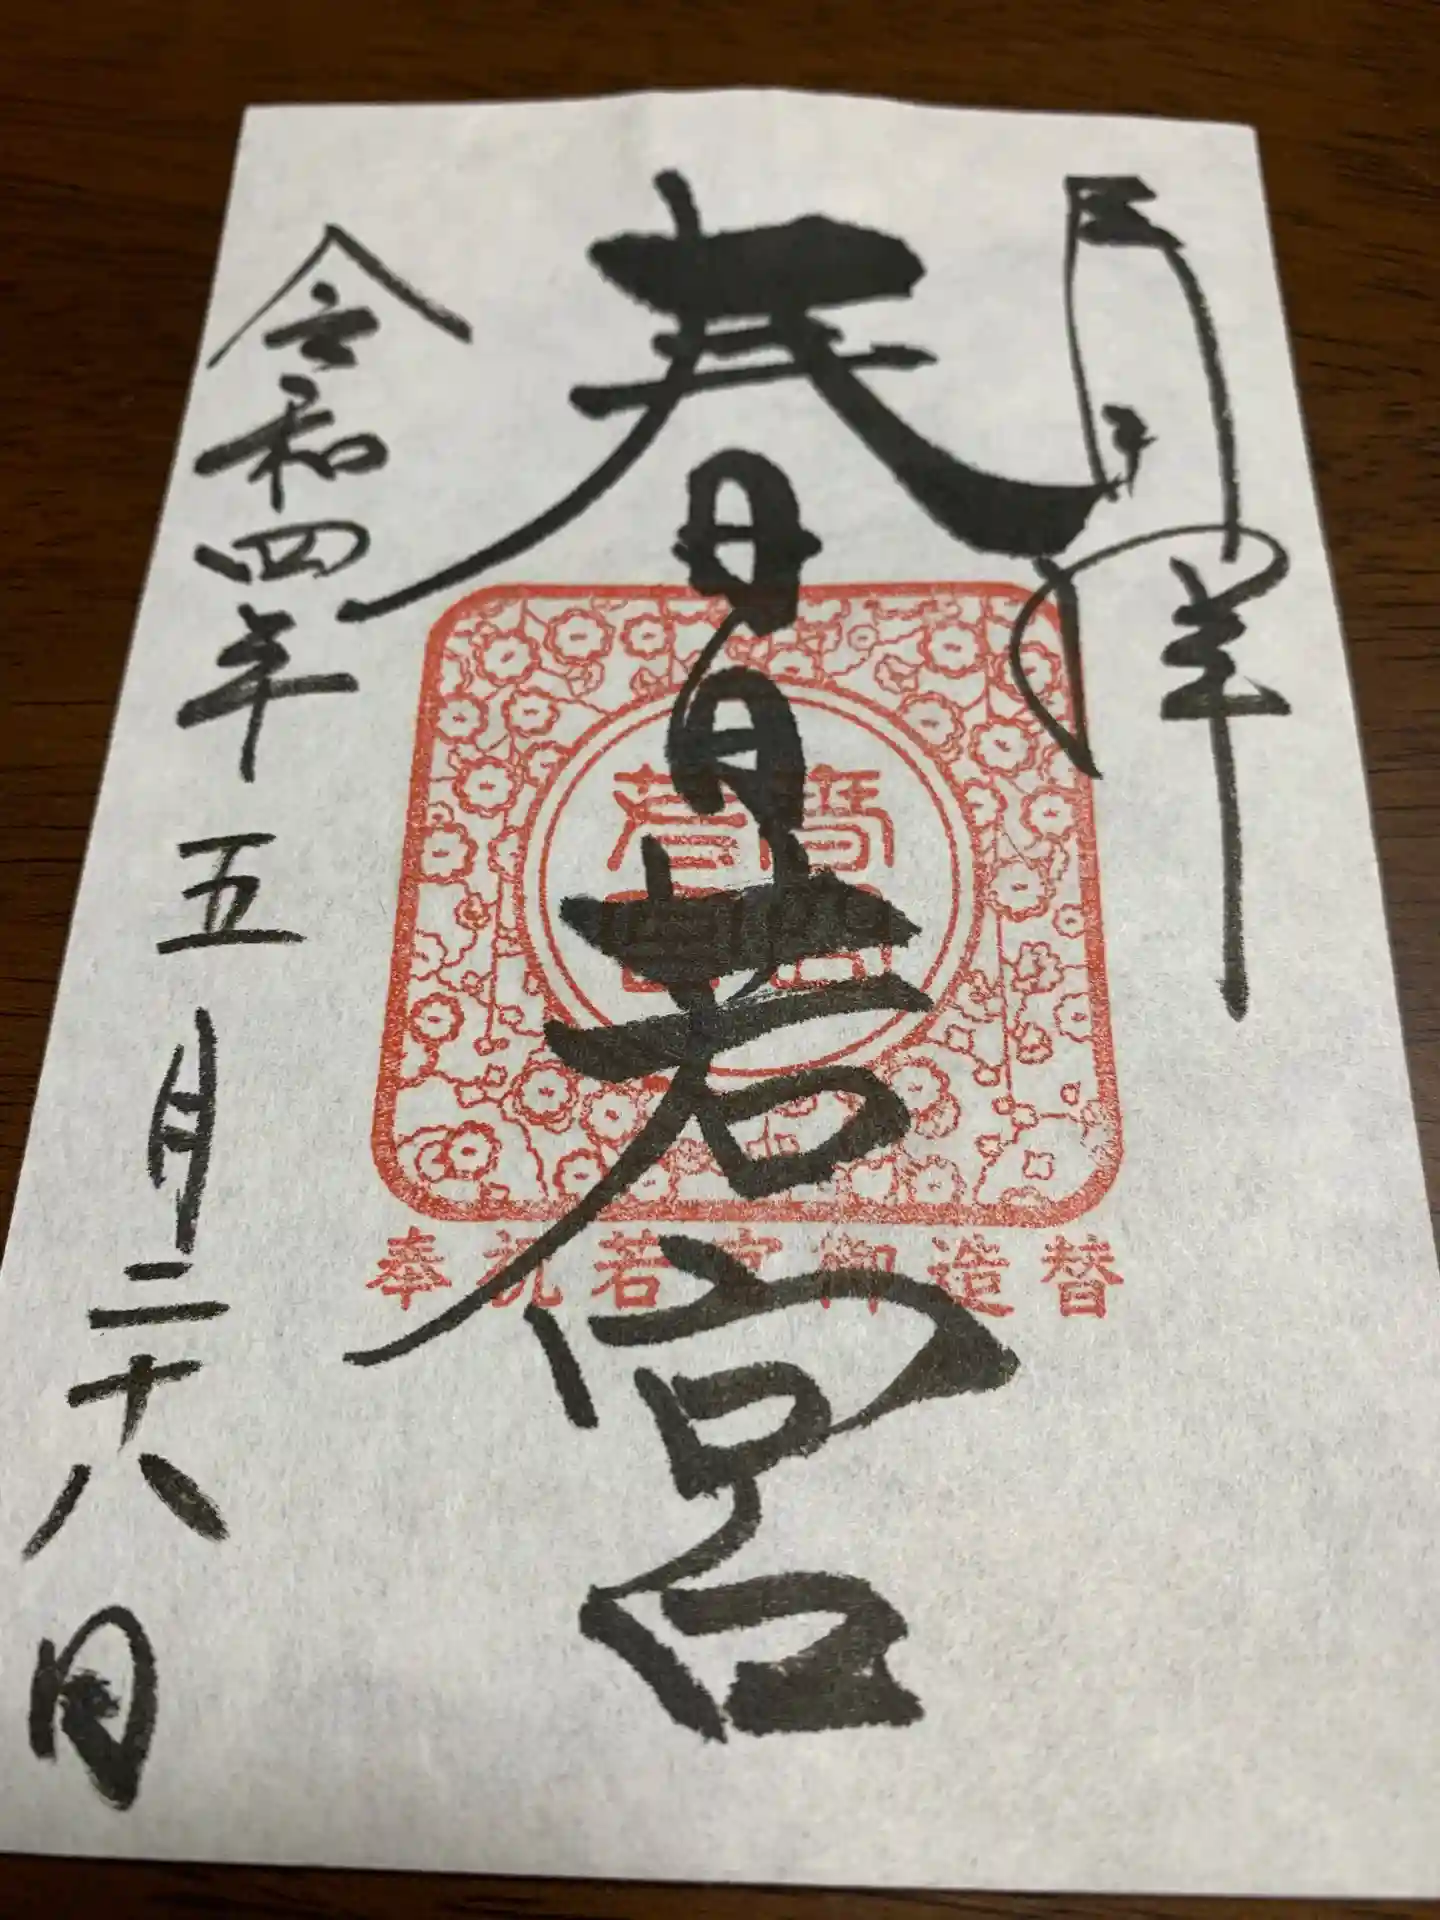 奉拝
春日若宮
若宮
奉祝若宮御造替
令和四年五月二十八日